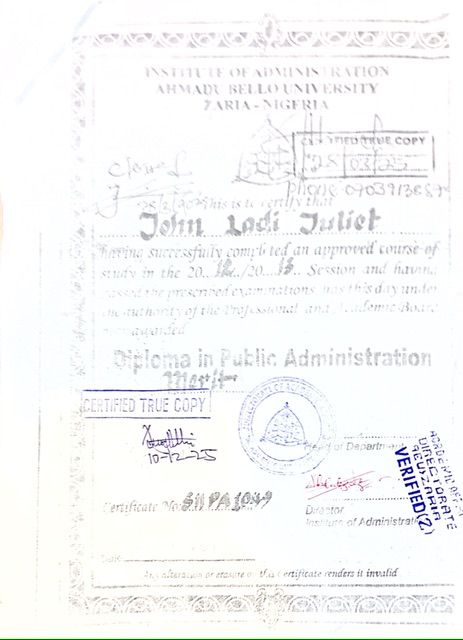 INSTITUTE OF ADMINISTRATION
AHMADU BELLO UNIVERSITY
ZARIA - NIGERIA
CERTIFIED TRUE COPY
03/25
This is to certify that
John Ladi Juliet
having successfully completed an approved course of
study in the 20 12 /20 13 Session and having
passed the prescribed examinations, has this day under
the authority of the Professional and Academic Board
been awarded
Diploma in Public Administration
Merit
CERTIFIED TRUE COPY
10-12-25
Head of Department
ACADEMIC
DIRECTORATE
ABU ZARIA
VERIFIED(2)
Certificate No:
Director
Institute of Administration
Date
Any alteration or erasure of this certificate renders it invalid